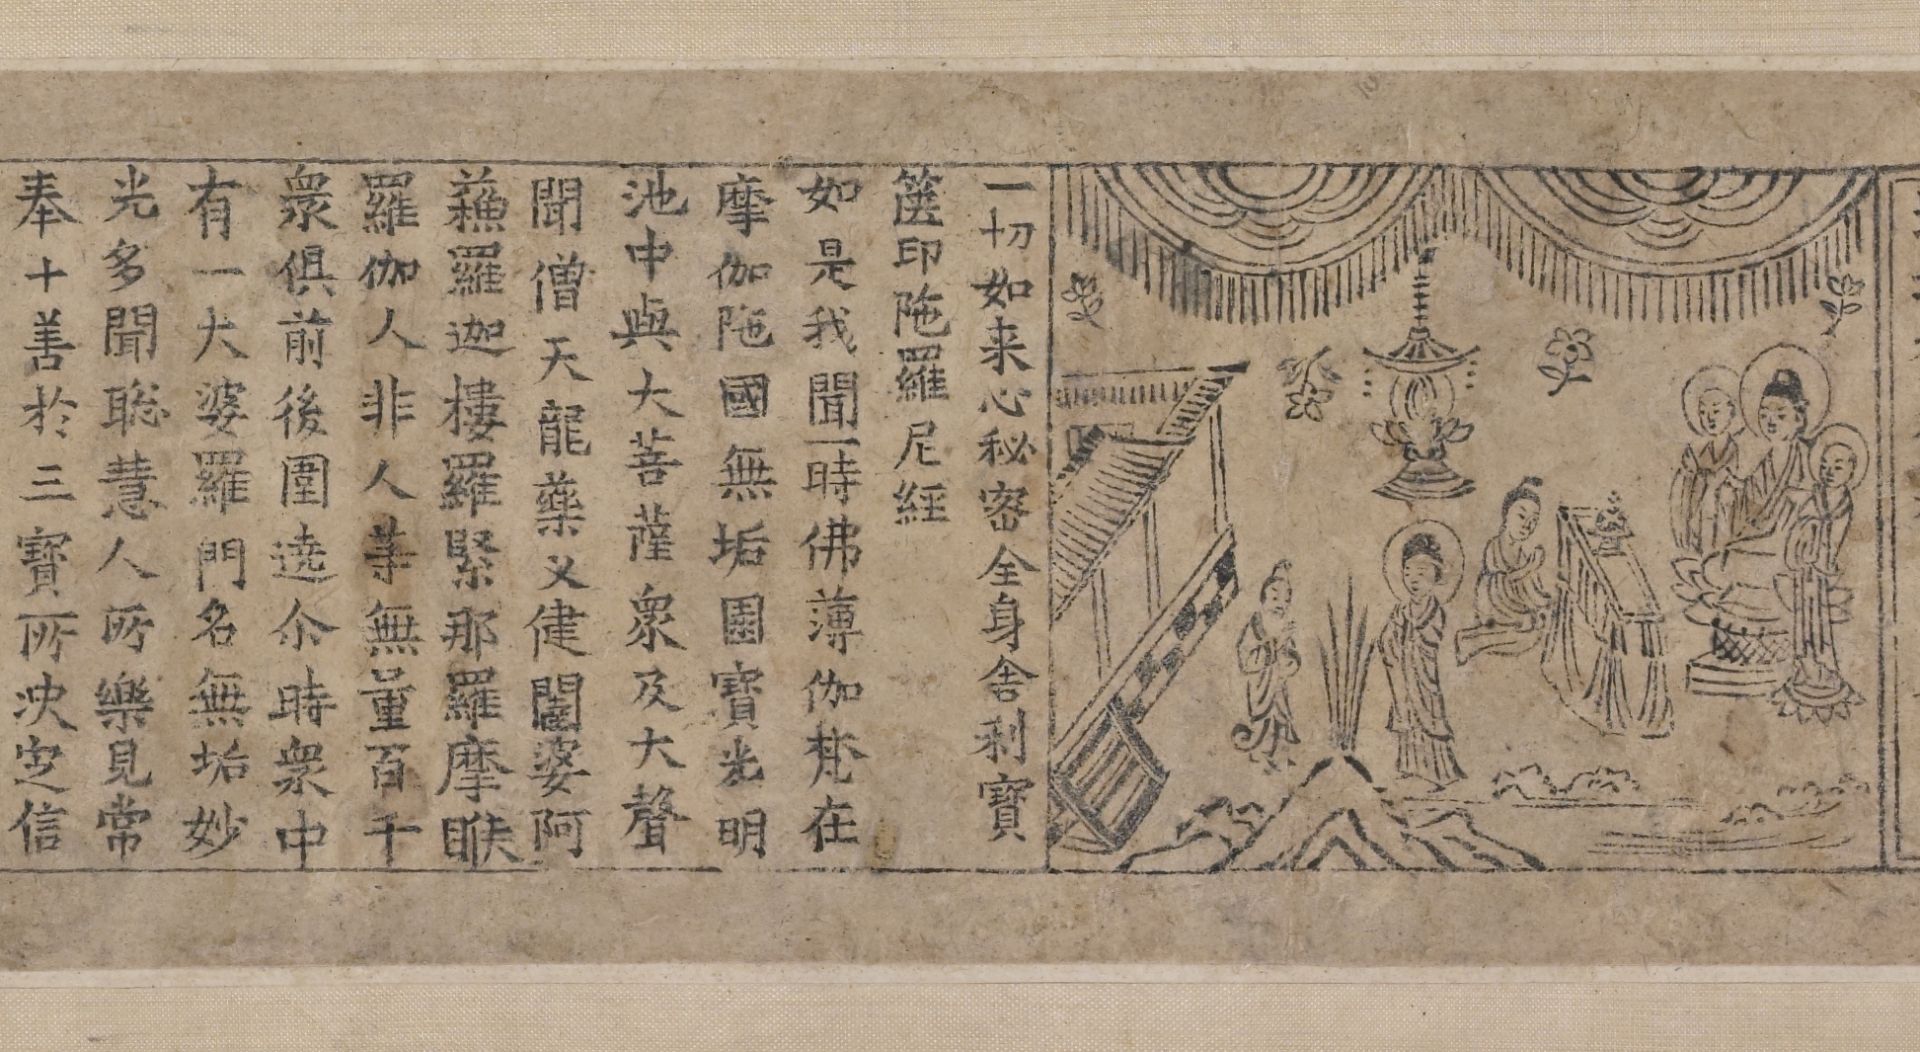 一切如来心秘密全身舍利寶
篋印陁羅尼經
如是我聞一時佛薄伽梵在
摩伽陁國無垢園寶光明
池中與大菩薩衆及大聲
聞僧天龍藥义健闥婆阿
蘓羅迦樓羅緊那羅摩睺
羅伽人非人等無量百千
衆俱前後圍遶尒時衆中
有一大婆羅門名無垢妙
光多聞聡慧人所樂見常
奉十善於三寶所决定信